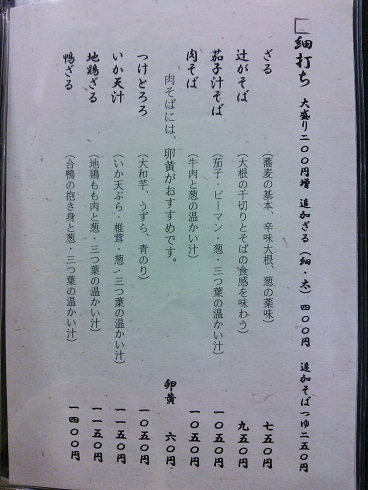 □細打ち 大盛り二〇〇円増 追加ざる(細・太)四〇〇円 追加そばつゆ二五〇円
ざる (蕎麦の基本、辛味大根、葱の薬味) 七五〇円
辻がそば (大根の千切りとそばの食感を味わう) 九五〇円
茄子汁そば (茄子・ピーマン・葱・三つ葉の温かい汁) 一〇五〇円
肉そば (牛肉と葱の温かい汁) 一〇五〇円
肉そばには、卵黄がおすすめです。 卵黄 六〇円
つけとろろ (大和芋、うずら、青のり) 一〇五〇円
いか天汁 (いか天ぷら、椎茸・葱・三つ葉の温かい汁) 一一五〇円
地鶏ざる (地鶏もも肉と葱・三つ葉の温かい汁) 一一五〇円
鴨ざる (合鴨の抱き身と葱・三つ葉の温かい汁) 一四〇〇円